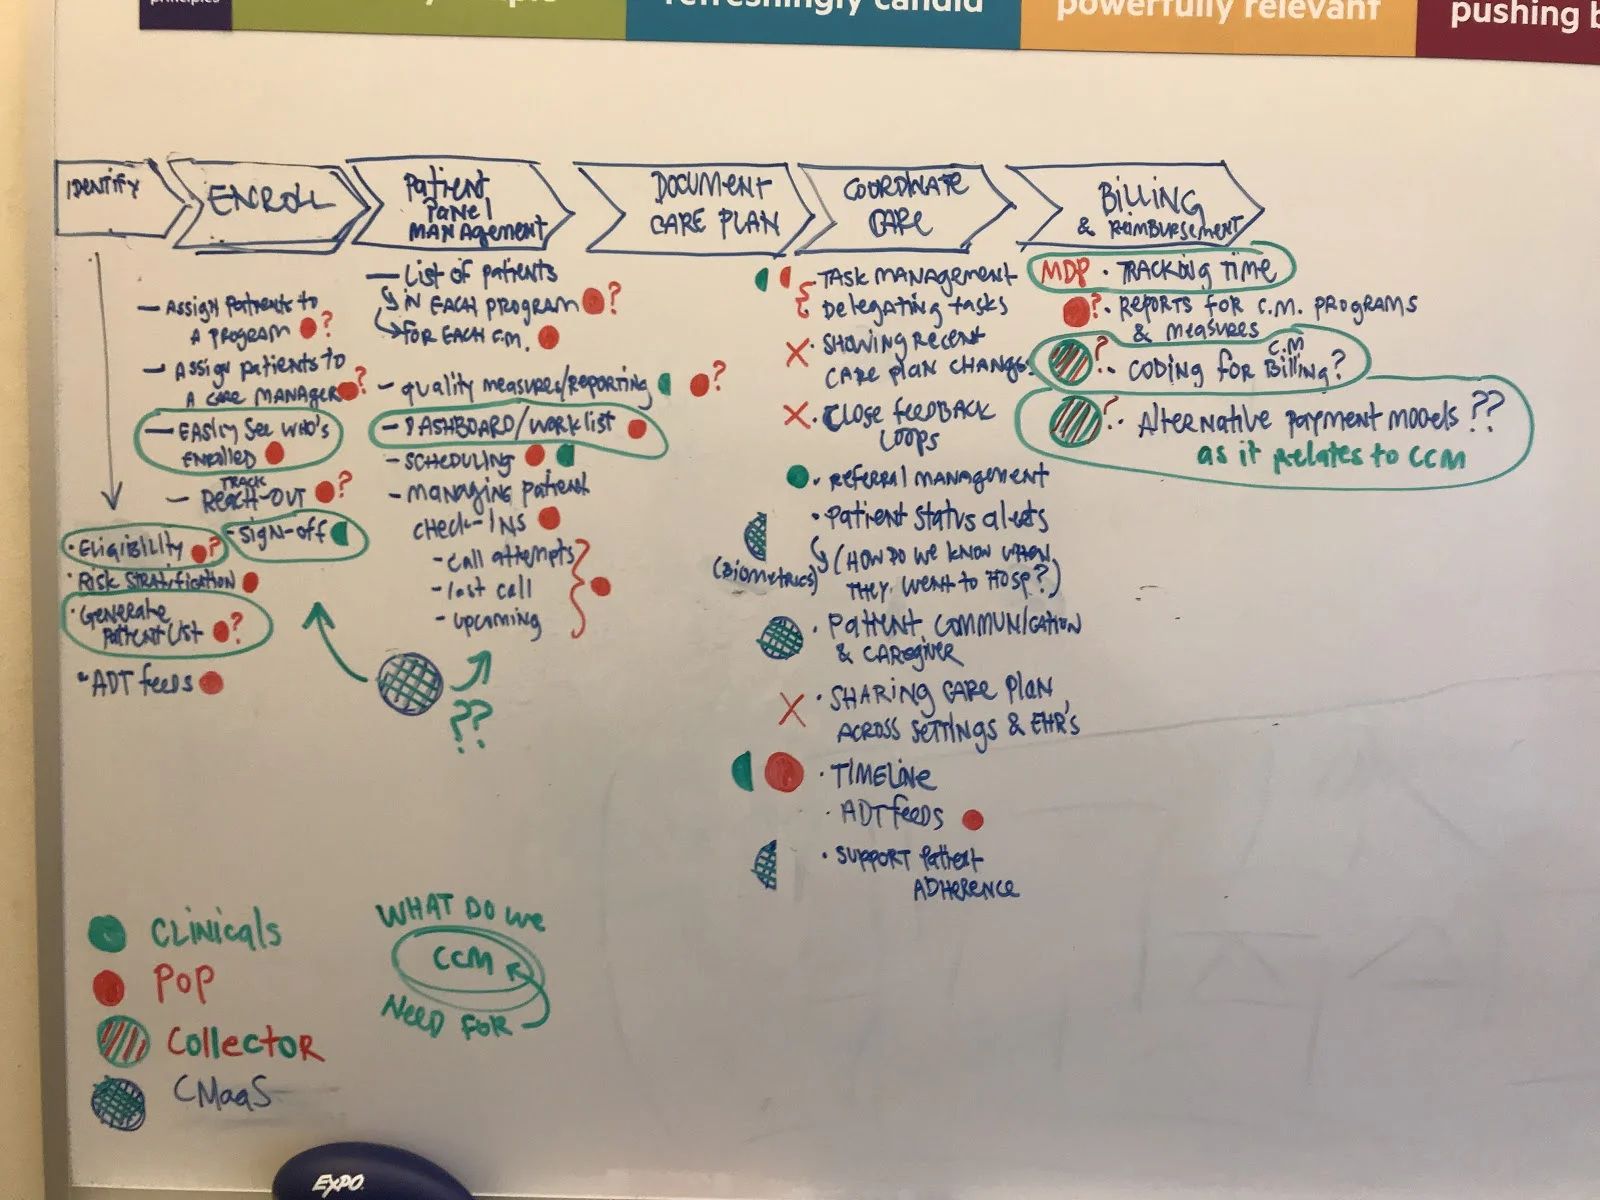 principles
refreshingly candid
powerfully relevant
pushing b
IDENTIFY
ENROLL
Patient
PANEl
MANAgement
DOCUMENT
CARE PLAN
COORDINATE
CARE
BILLING
& REIMBURSEMENT
— Assign Patients to
A PROGRAM ?
— Assign patients to
A CARE MANAGER ?
— EASily SEE WHO'S
ENROLLED
TRACK
— REACH-OUT ?
- Sign-off
· Eligibility ?
· Risk STRATification
· GENERATE
PAtient List ?
· ADT feeds
— List of patients
IN EACH PROGRAM ?
FOR EACH C.M.
- quality measures/REPORTING ?
- DASHBOARD/WORKlist
- SCHEDULING
- MANAGING PATIENT
CHECK-INS
- CAll attempts
- last call
- upcoming
??
TASK MANAGEMENT
DElegating tasks
X · SHOWING RECENT
CARE PLAN CHANGES
X · ClOSE FEEDBACK
LOOPS
· REFERRAL MANAGEMENT
· Patient STATUS AlERTS
(HOW DO WE KNOW WHEN
THEY WENT TO HOSP?)
(BIOMETRICS)
· PATIENT COMMUNICATION
& CAREGIVER
X · SHARING CARE PlAN
ACROSS SETTINGS & EHR'S
· TIMELINE
· ADT FEEDS
· SUPPORT PATIENT
ADHERENCE
MDP · TRACKING TIME
? · REPORTS FOR C.M. PROGRAMS
& MEASURES
C.M
? · CODING FOR BILLING?
? · AlteRNATive PAYMENT MODELS ??
as it RELATES to CCM
CLINICALS
POP
COLLECTOR
CMaaS
WHAT DO WE
CCM
NEED FOR
EXPO